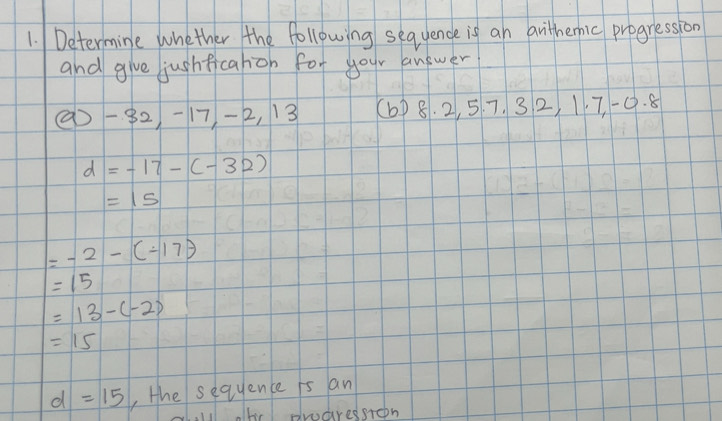 1. Determine whether the following sequence is an arithemic progression
and give justification for your answer.
(a) -32, -17, -2, 13 (b) 8.2, 5.7, 3.2, 1.7, -0.8
d = -17 - (-32)
= 15
= -2 - (-17)
= 15
= 13 - (-2)
= 15
d = 15, the sequence is an
progression